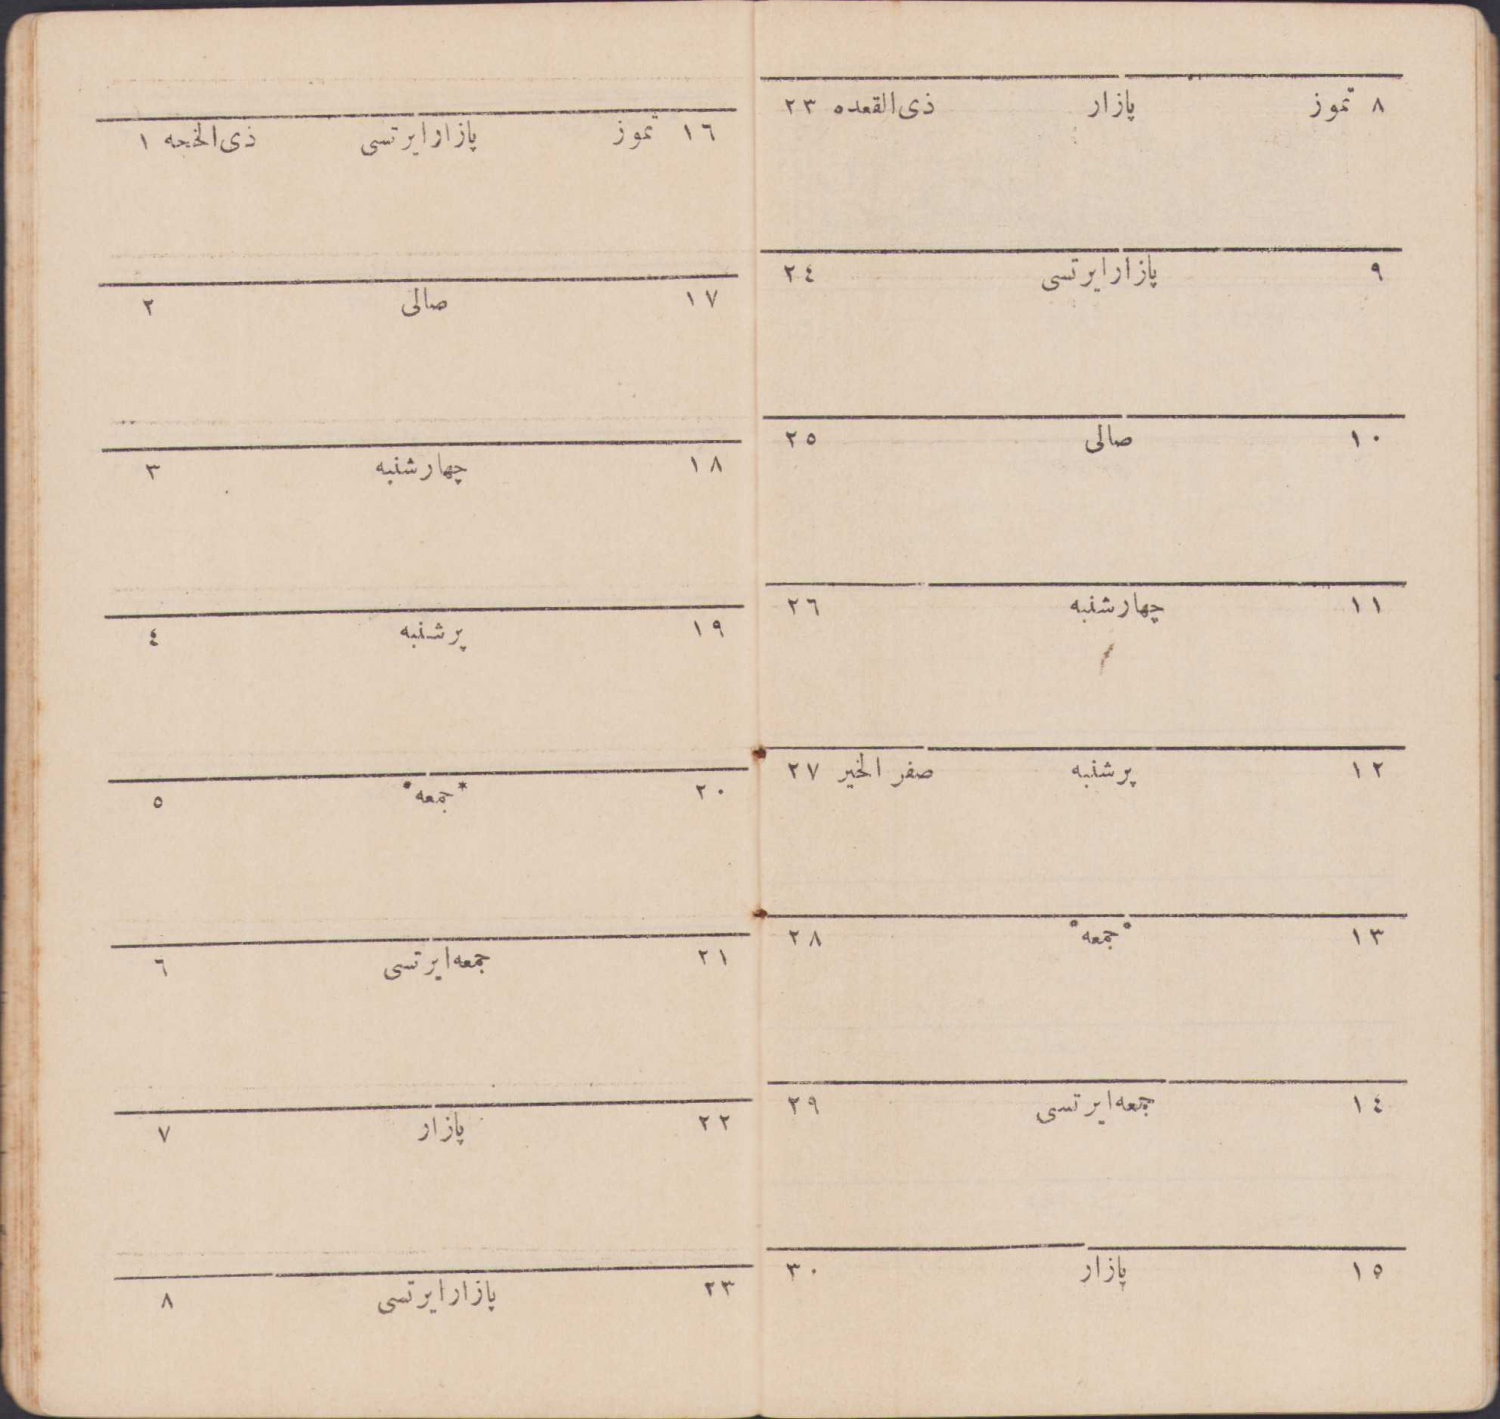 ٨ تموز پازار ذى‌القعده ٢٣
٩ پازار ايرتسى ٢٤
١٠ صالى ٢٥
١١ چهارشنبه ٢٦
١٢ پرشنبه صفر الخير ٢٧
١٣ °جمعه° ٢٨
١٤ جمعه ايرتسى ٢٩
١٥ پازار ٣٠
١٦ تموز پازار ايرتسى ذى‌الحجه ١
١٧ صالى ٢
١٨ چهارشنبه ٣
١٩ پرشنبه ٤
٢٠ *جمعه° ٥
٢١ جمعه ايرتسى ٦
٢٢ پازار ٧
٢٣ پازار ايرتسى ٨